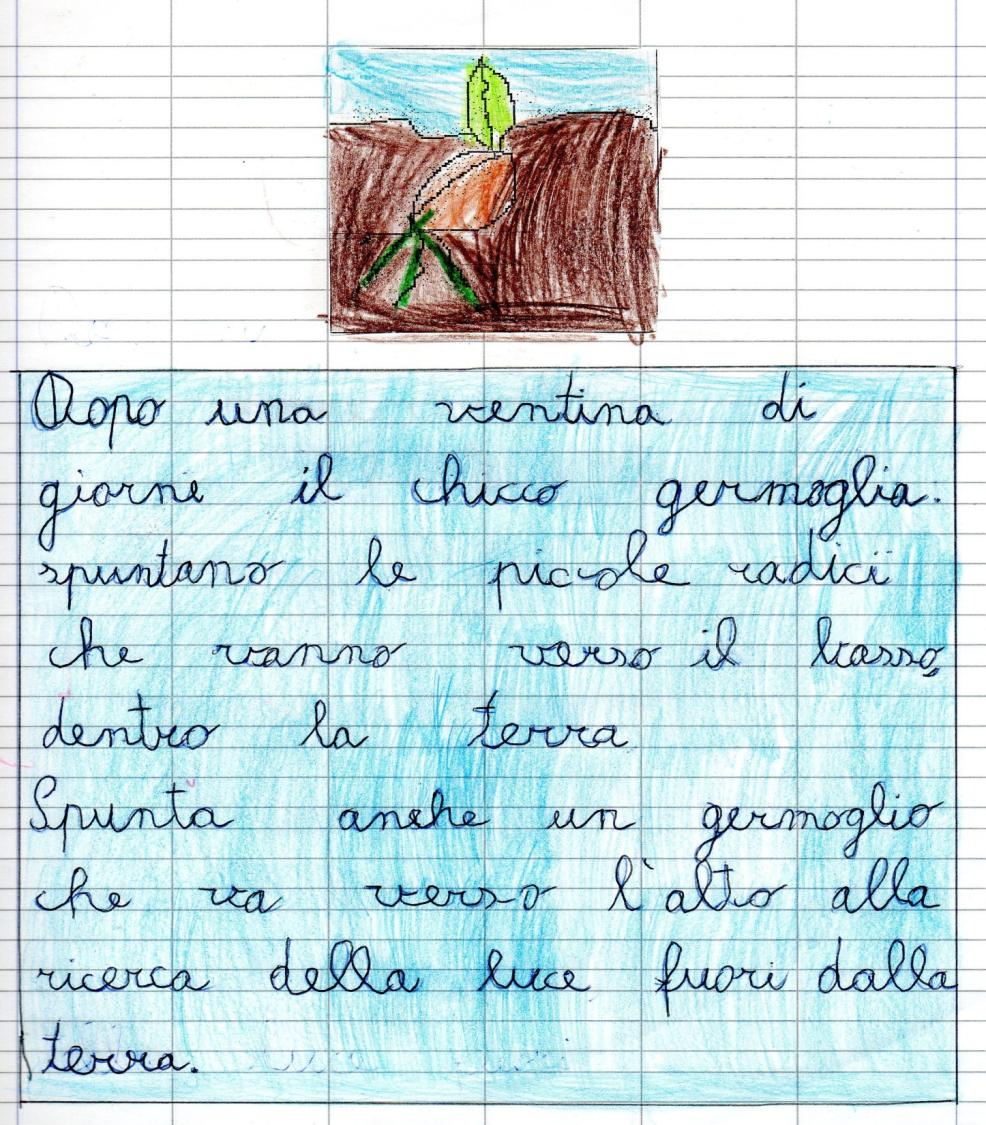 Dopo una ventina di
giorni il chicco germoglia.
spuntano le piccole radici
che vanno verso il basso,
dentro la terra
Spunta anche un germoglio
che va verso l'alto alla
ricerca della luce fuori dalla
terra.